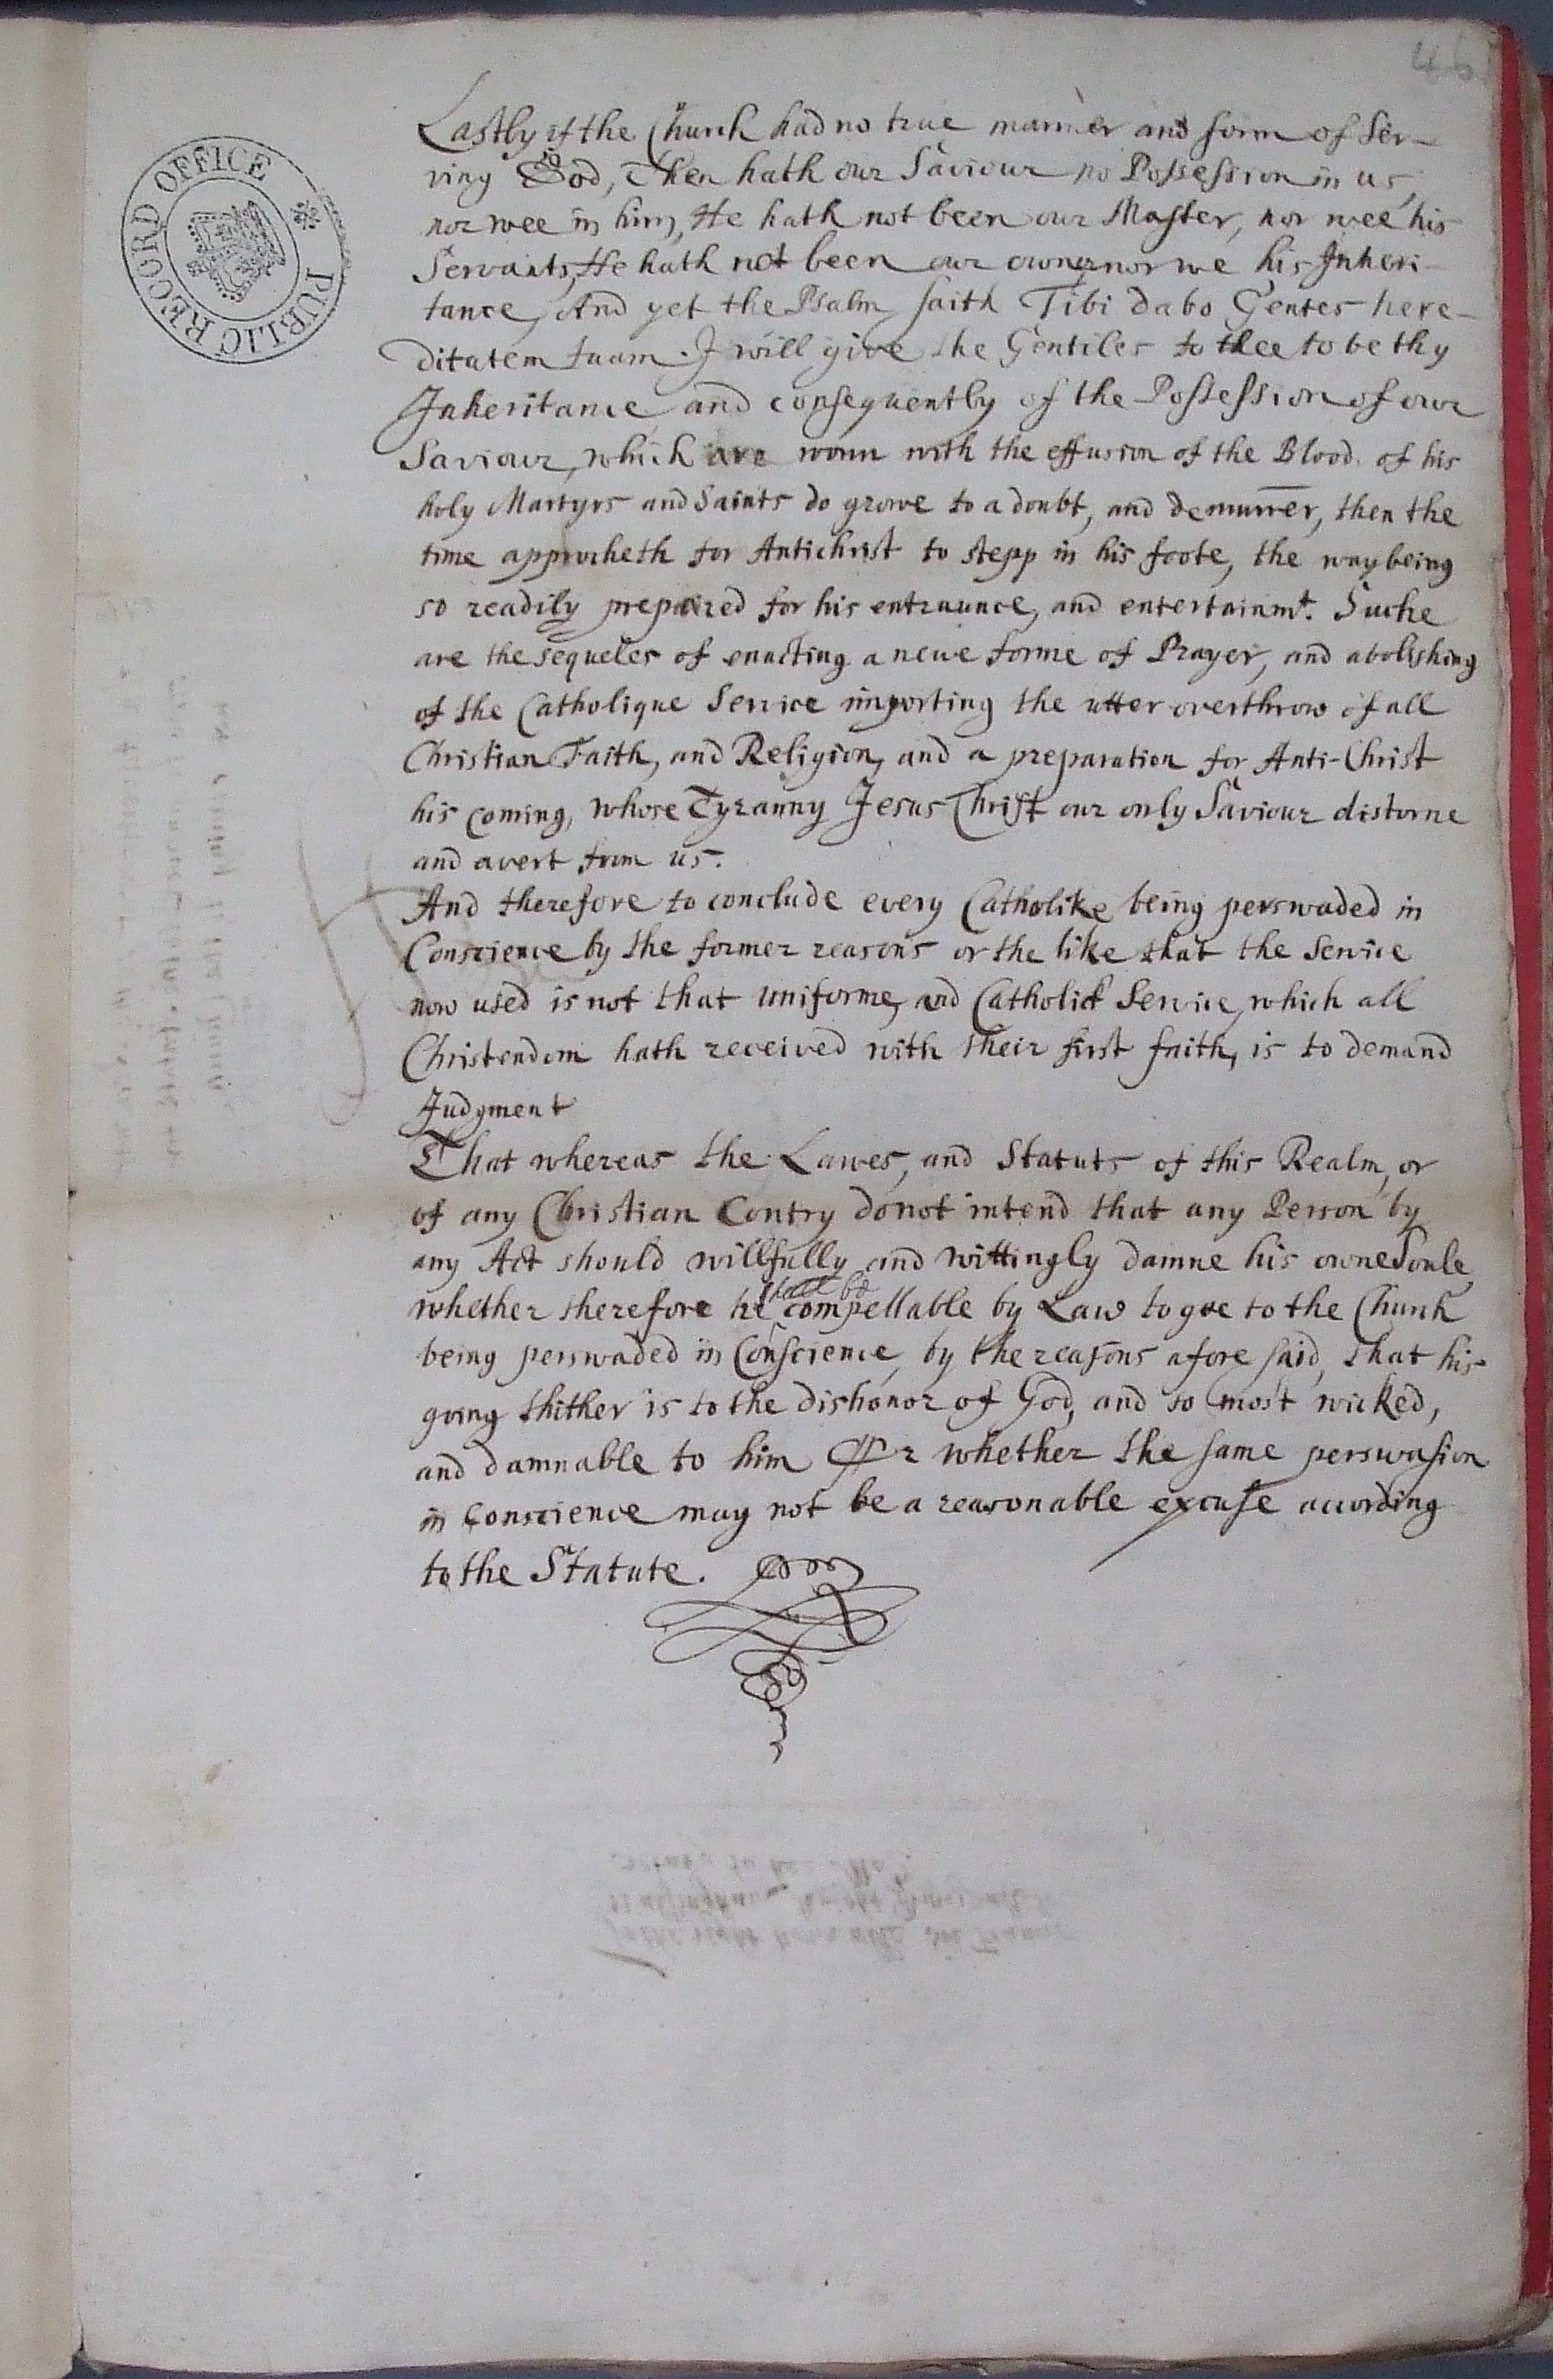 46
PUBLIC RECORD OFFICE
Lastly if the Church had no true manner and form of Ser-
ving God, Then hath our Saviour no Possession in us,
nor wee in him, He hath not been our Master, nor wee his
Servants, He hath not been our owner nor we his Inheri-
tance, And yet the Psalm saith Tibi dabo Gentes here-
ditatem tuam. I will give the Gentiles to thee to be thy
Inheritance, and consequently of the Possession of our
Saviour, which are wonn with the effusion of the Blood of his
holy Martyrs and Saints do growe to a doubt, and demurrer, then the
time approcheth for Antichrist to stepp in his foote, the way being
so readily prepaired for his entraunce, and entertainmt. Suche
are the sequeles of enacting a newe forme of Prayer, and abolishing
of the Catholique Service importing the utter overthrow of all
Christian Faith, and Religion, and a preparation for Anti-Christ
his coming, whose Tyranny Jesus Christ our only Saviour distorne
and avert from us.
And therefore to conclude every Catholike being perswaded in
Conscience by the former reasons or the like that the Service
now used is not that uniforme, and Catholick Service, which all
Christendom hath received with their first faith, is to demand
Judgment
That whereas the Lawes, and Statuts of this Realm, or
of any Christian Contry do not intend that any Person by
any Act should willfully and wittingly damne his owne Soule,
shall be
whether therefore he compellable by Law to goe to the Church
being perswaded in Conscience, by the reasons afore said, that his
going thither is to the dishonor of God, and so most wicked,
and damnable to him Or whether the same perswasion
in Conscience may not be a reasonable excuse according
to the Statute.